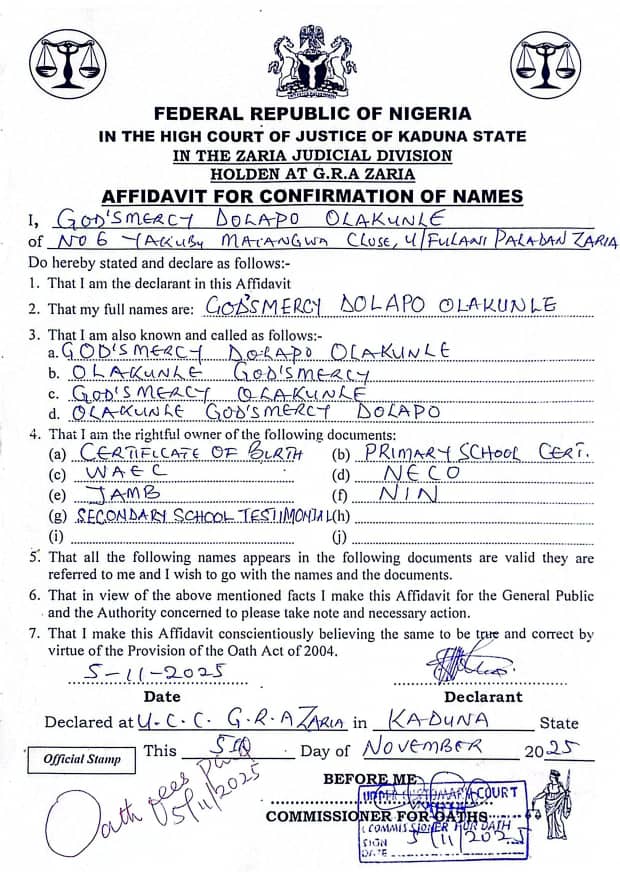 FEDERAL REPUBLIC OF NIGERIA
IN THE HIGH COURT OF JUSTICE OF KADUNA STATE
IN THE ZARIA JUDICIAL DIVISION
HOLDEN AT G.R.A ZARIA
AFFIDAVIT FOR CONFIRMATION OF NAMES
I, GOD'SMERCY DOLAPO OLAKUNLE
of NO 6 YAKUBU MATANGWA CLOSE, U/FULANI PALADAN ZARIA
Do hereby stated and declare as follows:-
1. That I am the declarant in this Affidavit
2. That my full names are: GOD'SMERCY DOLAPO OLAKUNLE
3. That I am also known and called as follows:-
a. GOD'SMERCY DOLAPO OLAKUNLE
b. OLAKUNLE GOD'SMERCY
c. GOD'SMERCY OLAKUNLE
d. OLAKUNLE GOD'SMERCY DOLAPO
4. That I am the rightful owner of the following documents:
(a) CERTIFICATE OF BIRTH (b) PRIMARY SCHOOL CERT.
(c) WAEC (d) NECO
(e) JAMB (f) NIN
(g) SECONDARY SCHOOL TESTIMONIAL (h)
(i) (j)
5. That all the following names appears in the following documents are valid they are
referred to me and I wish to go with the names and the documents.
6. That in view of the above mentioned facts I make this Affidavit for the General Public
and the Authority concerned to please take note and necessary action.
7. That I make this Affidavit conscientiously believing the same to be true and correct by
virtue of the Provision of the Oath Act of 2004.
5-11-2025
Date Declarant
Declared at U.C.C. G.R.A ZARIA in KADUNA State
This 5th Day of NOVEMBER 2025
Official Stamp
Oath fees paid
5/11/2025
BEFORE ME
COMMISSIONER FOR OATHS
UPPER CUSTOMARY COURT
COMMISSIONER FOR OATH
SIGN
DATE 5/11/2025